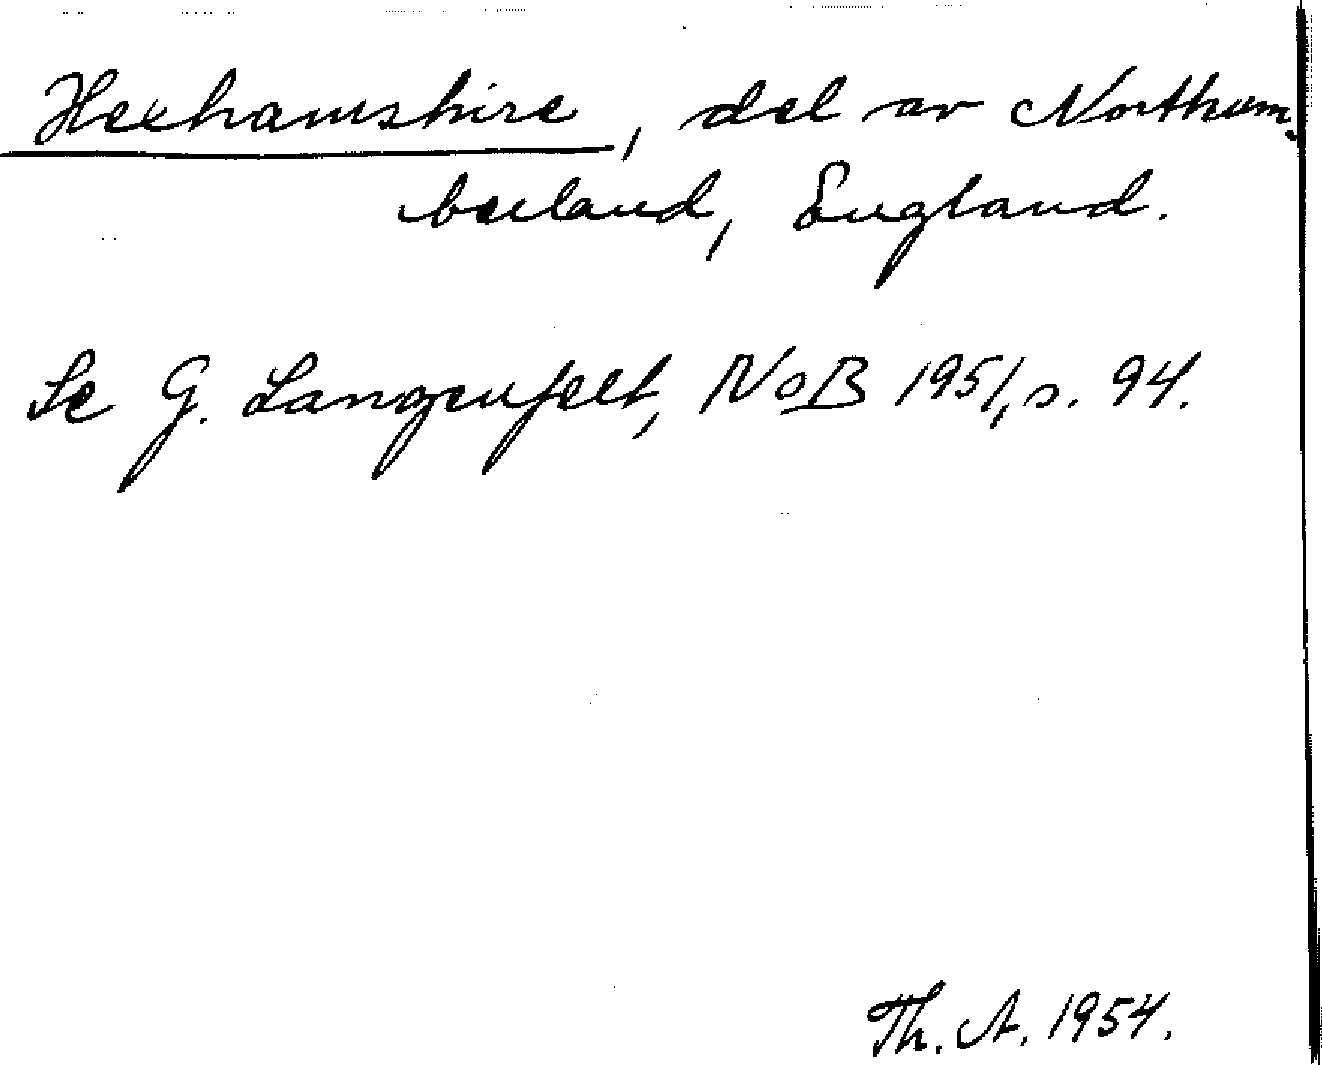 Hexhamshire, del av Northum-
berland, England.
Se G. Langenfelt, NoB 1951, s. 94.
Th. A. 1954.